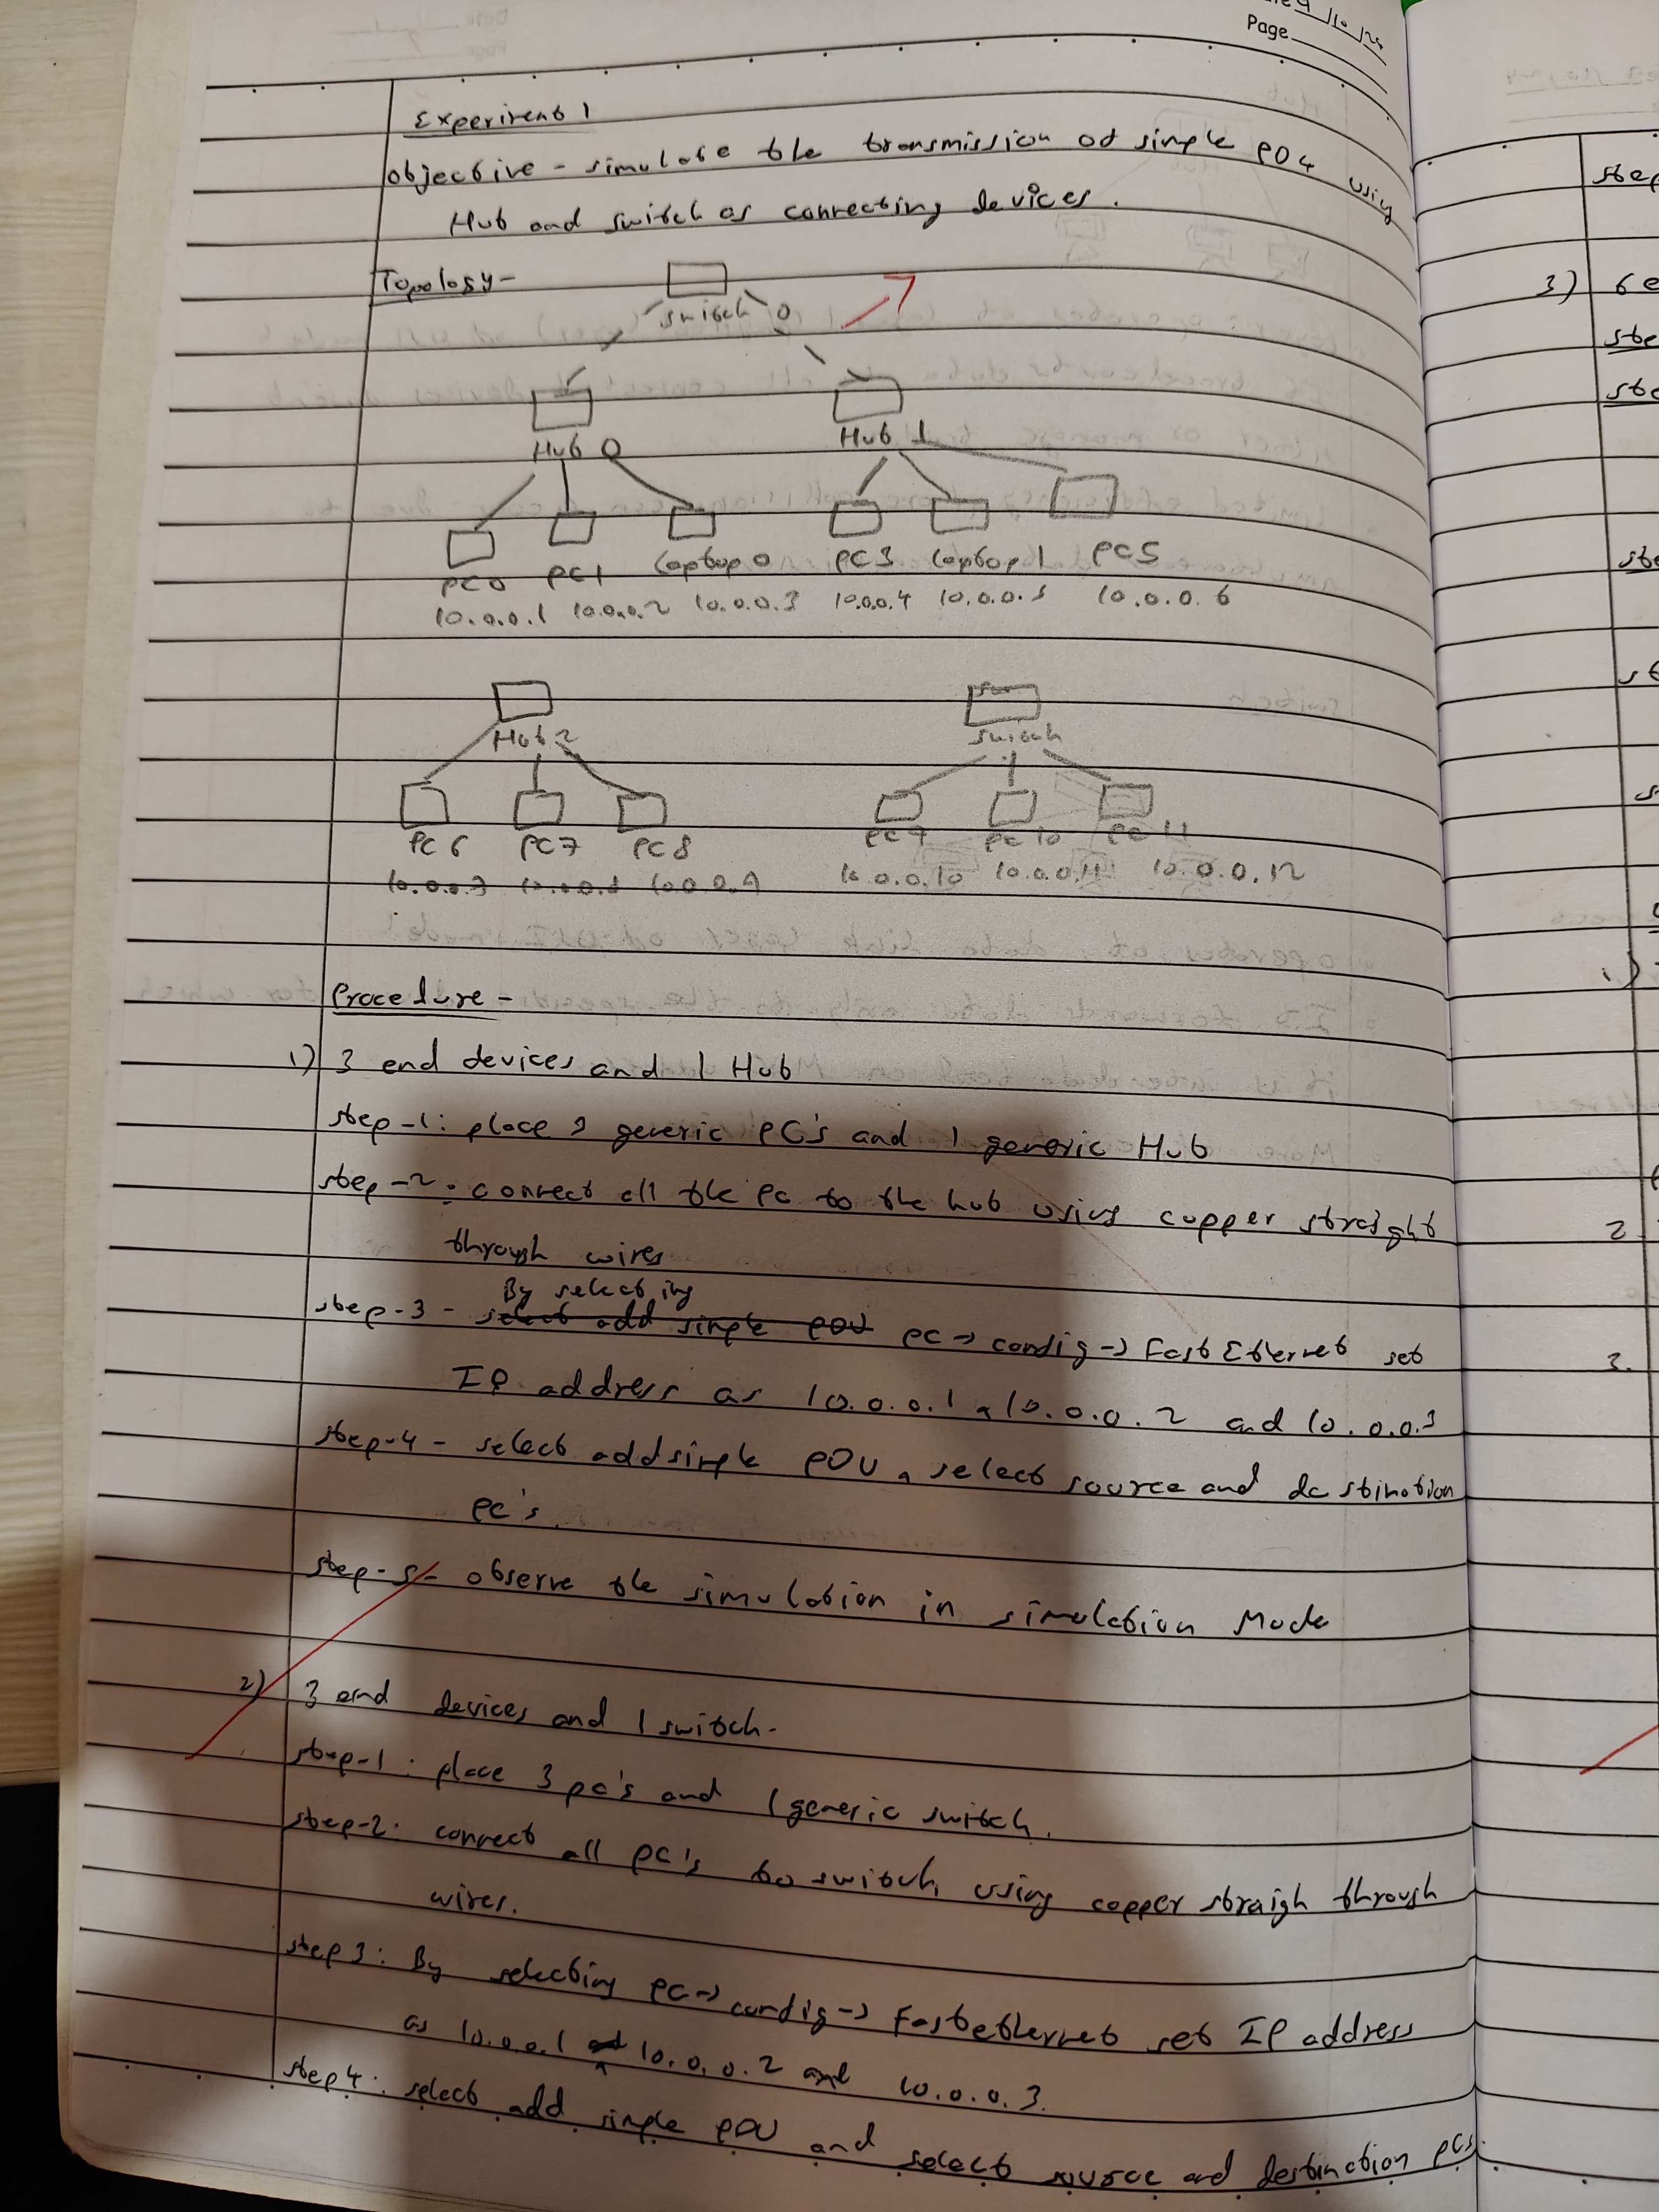 9/10/24
Page
Experiment 1
Objective - simulate the transmission of simple PDU using
Hub and switch as connecting devices.
Topology-
switch 0
Hub 0 Hub 1
PC0 PC1 Laptop 0 PC3 Laptop 1 PC5
10.0.0.1 10.0.0.2 10.0.0.3 10.0.0.4 10.0.0.5 10.0.0.6
Hub 2 switch
PC6 PC7 PC8 PC9 PC10 PC11
10.0.0.8 10.0.0.9 10.0.0.10 10.0.0.11 10.0.0.12
Procedure -
1) 3 end devices and 1 Hub
step-1: place 3 generic PC's and 1 generic Hub
step-2: connect all the PC to the hub using copper straight
through wires
By selecting
step-3 - select add simple PDU PC → config → FastEthernet set
IP address as 10.0.0.1, 10.0.0.2 and 10.0.0.3
step-4 - select add simple PDU, select source and destination
PC's.
step-5- observe the simulation in simulation Mode
2) 3 end devices and 1 switch-
step-1: place 3 pc's and 1 generic switch.
step-2: connect all PC's to switch, using copper straigh through
wires.
step 3: By selecting PC → config → Fastethernet set IP address
as 10.0.0.1, 10.0.0.2 and 10.0.0.3.
step 4: select add simple PDU and select source and destination PCs.
step
3)
2
3.